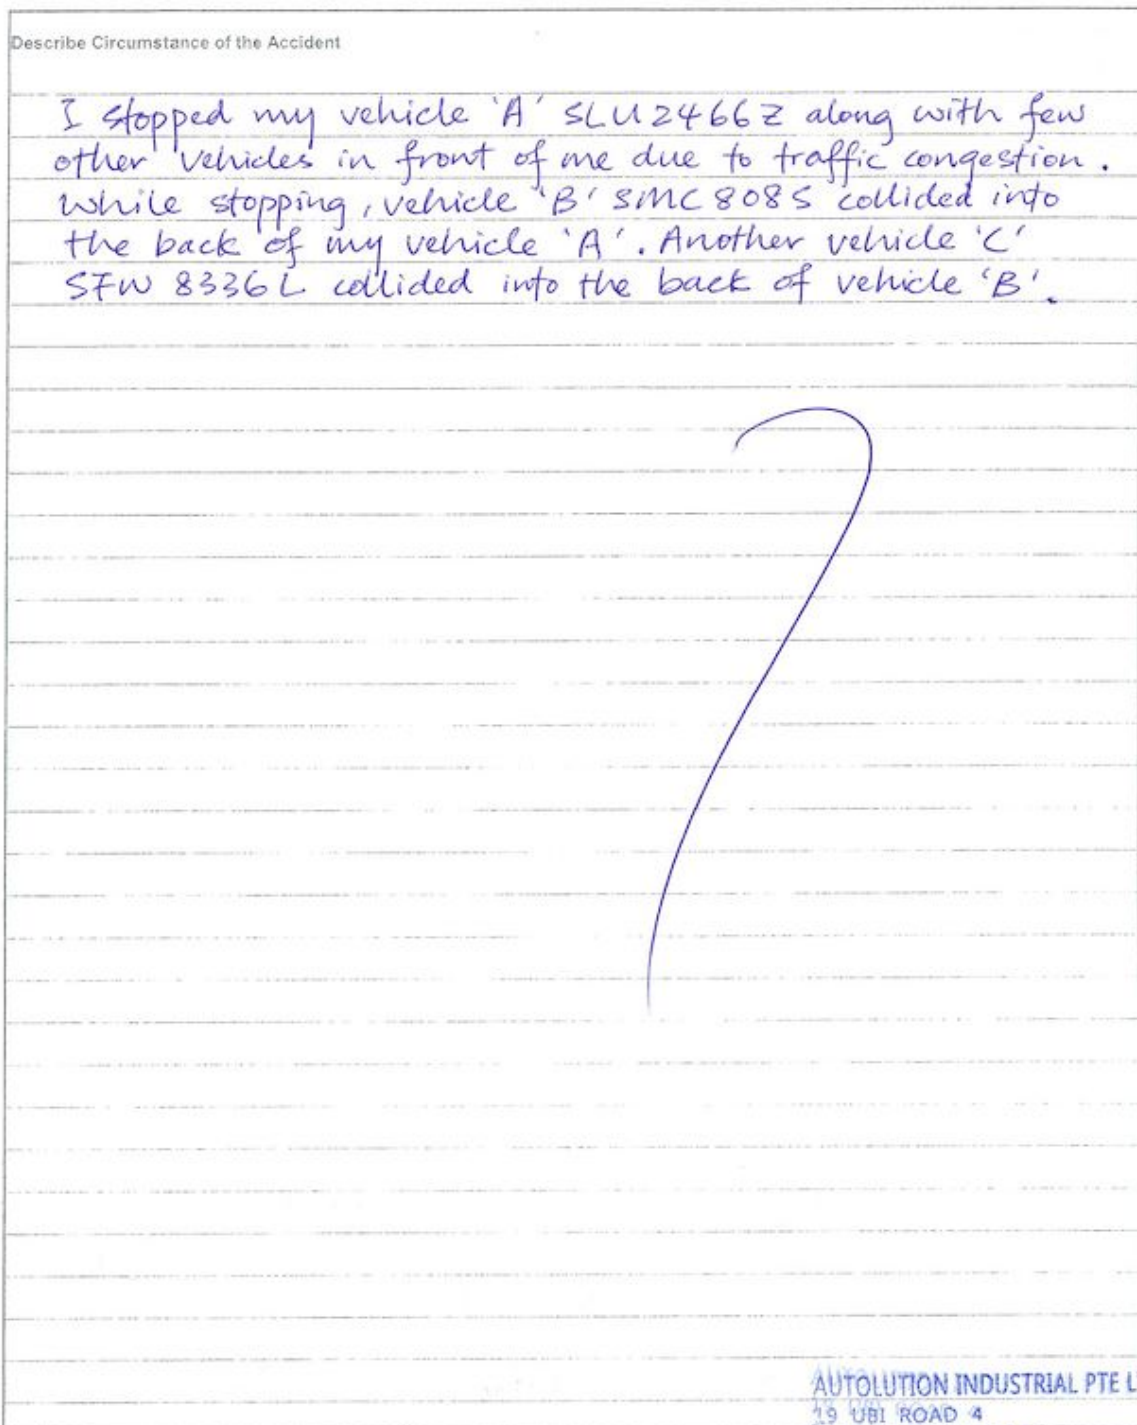 Describe Circumstance of the Accident
I stopped my vehicle 'A' SLU2466Z along with few
other vehicles in front of me due to traffic congestion.
While stopping, vehicle 'B' SMC808S collided into
the back of my vehicle 'A'. Another vehicle 'C'
SFW 8336L collided into the back of vehicle 'B'.
AUTOLUTION INDUSTRIAL PTE L
19 UBI ROAD 4